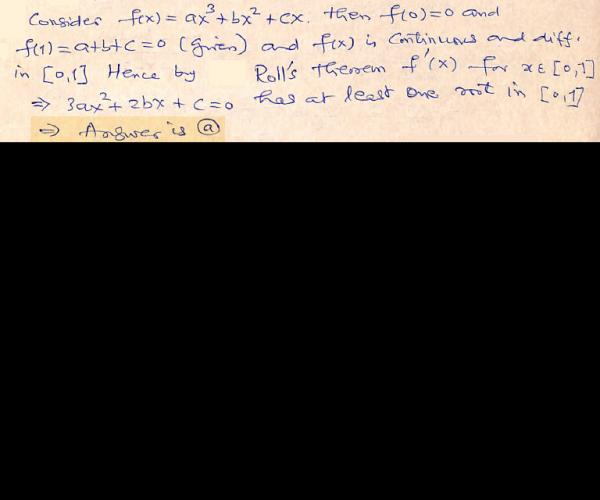 Consider f(x) = ax³ + bx² + cx. then f(0)=0 and
f(1) = a+b+c = 0 (given) and f(x) is continuous and diff.
in [0,1] Hence by Roll's therem f'(x) for x ∈ [0,1]
⇒ 3ax² + 2bx + c = 0 has at least one root in [0,1]
⇒ Answer is ⓐ